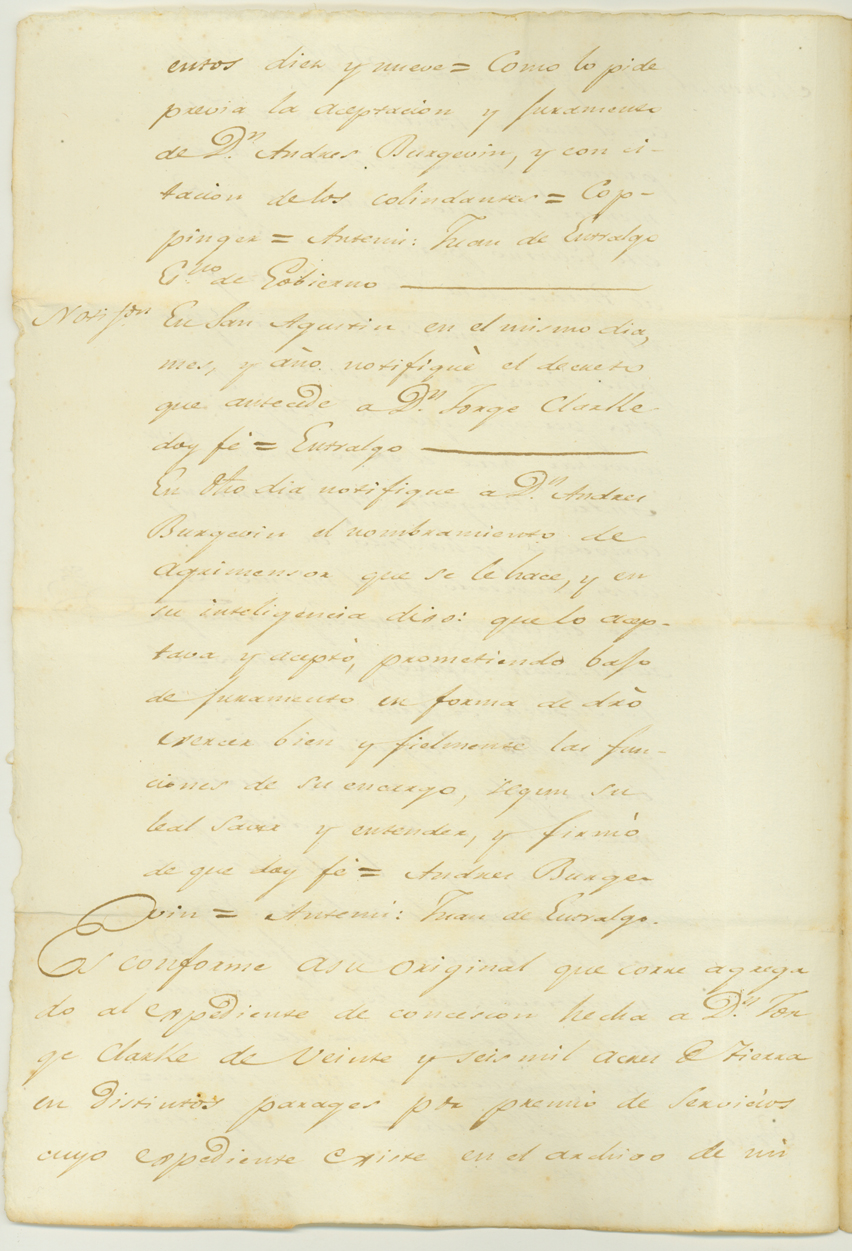 entos diez y nueve = Como lo pide
previa la aceptacion y juramento
de D.n Andres Burgevin, y con ci-
tacion de los colindantes = Cop-
pinger = Antemi: Juan de Entralgo
E.no de Gobierno
Notif.on En San Agustin en el mismo dia,
mes, y año notifiquè el decreto
que antecede a D.n Jorge Clarke
doy fé = Entralgo
En dho dia notifique a D.n Andres
Burgevin el nombramiento de
Agrimensor que se le hace, y en
su inteligencia dixo: que lo acep-
tava y aceptò, prometiendo bajo
de juramento en forma de drò
exercer bien y fielmente las fun-
ciones de su encargo, segun su
leal saver y entender, y firmò
de que doy fé = Andres Burge-
vin = Antemi: Juan de Entralgo.
Es conforme asu original que corre agrega
do al expediente de concesion hecha a D.n Jor
ge Clarke de Veinte y seis mil acres de tierra
en distintos parages por premio de servicios
cuyo expediente existe en el archivo de mi